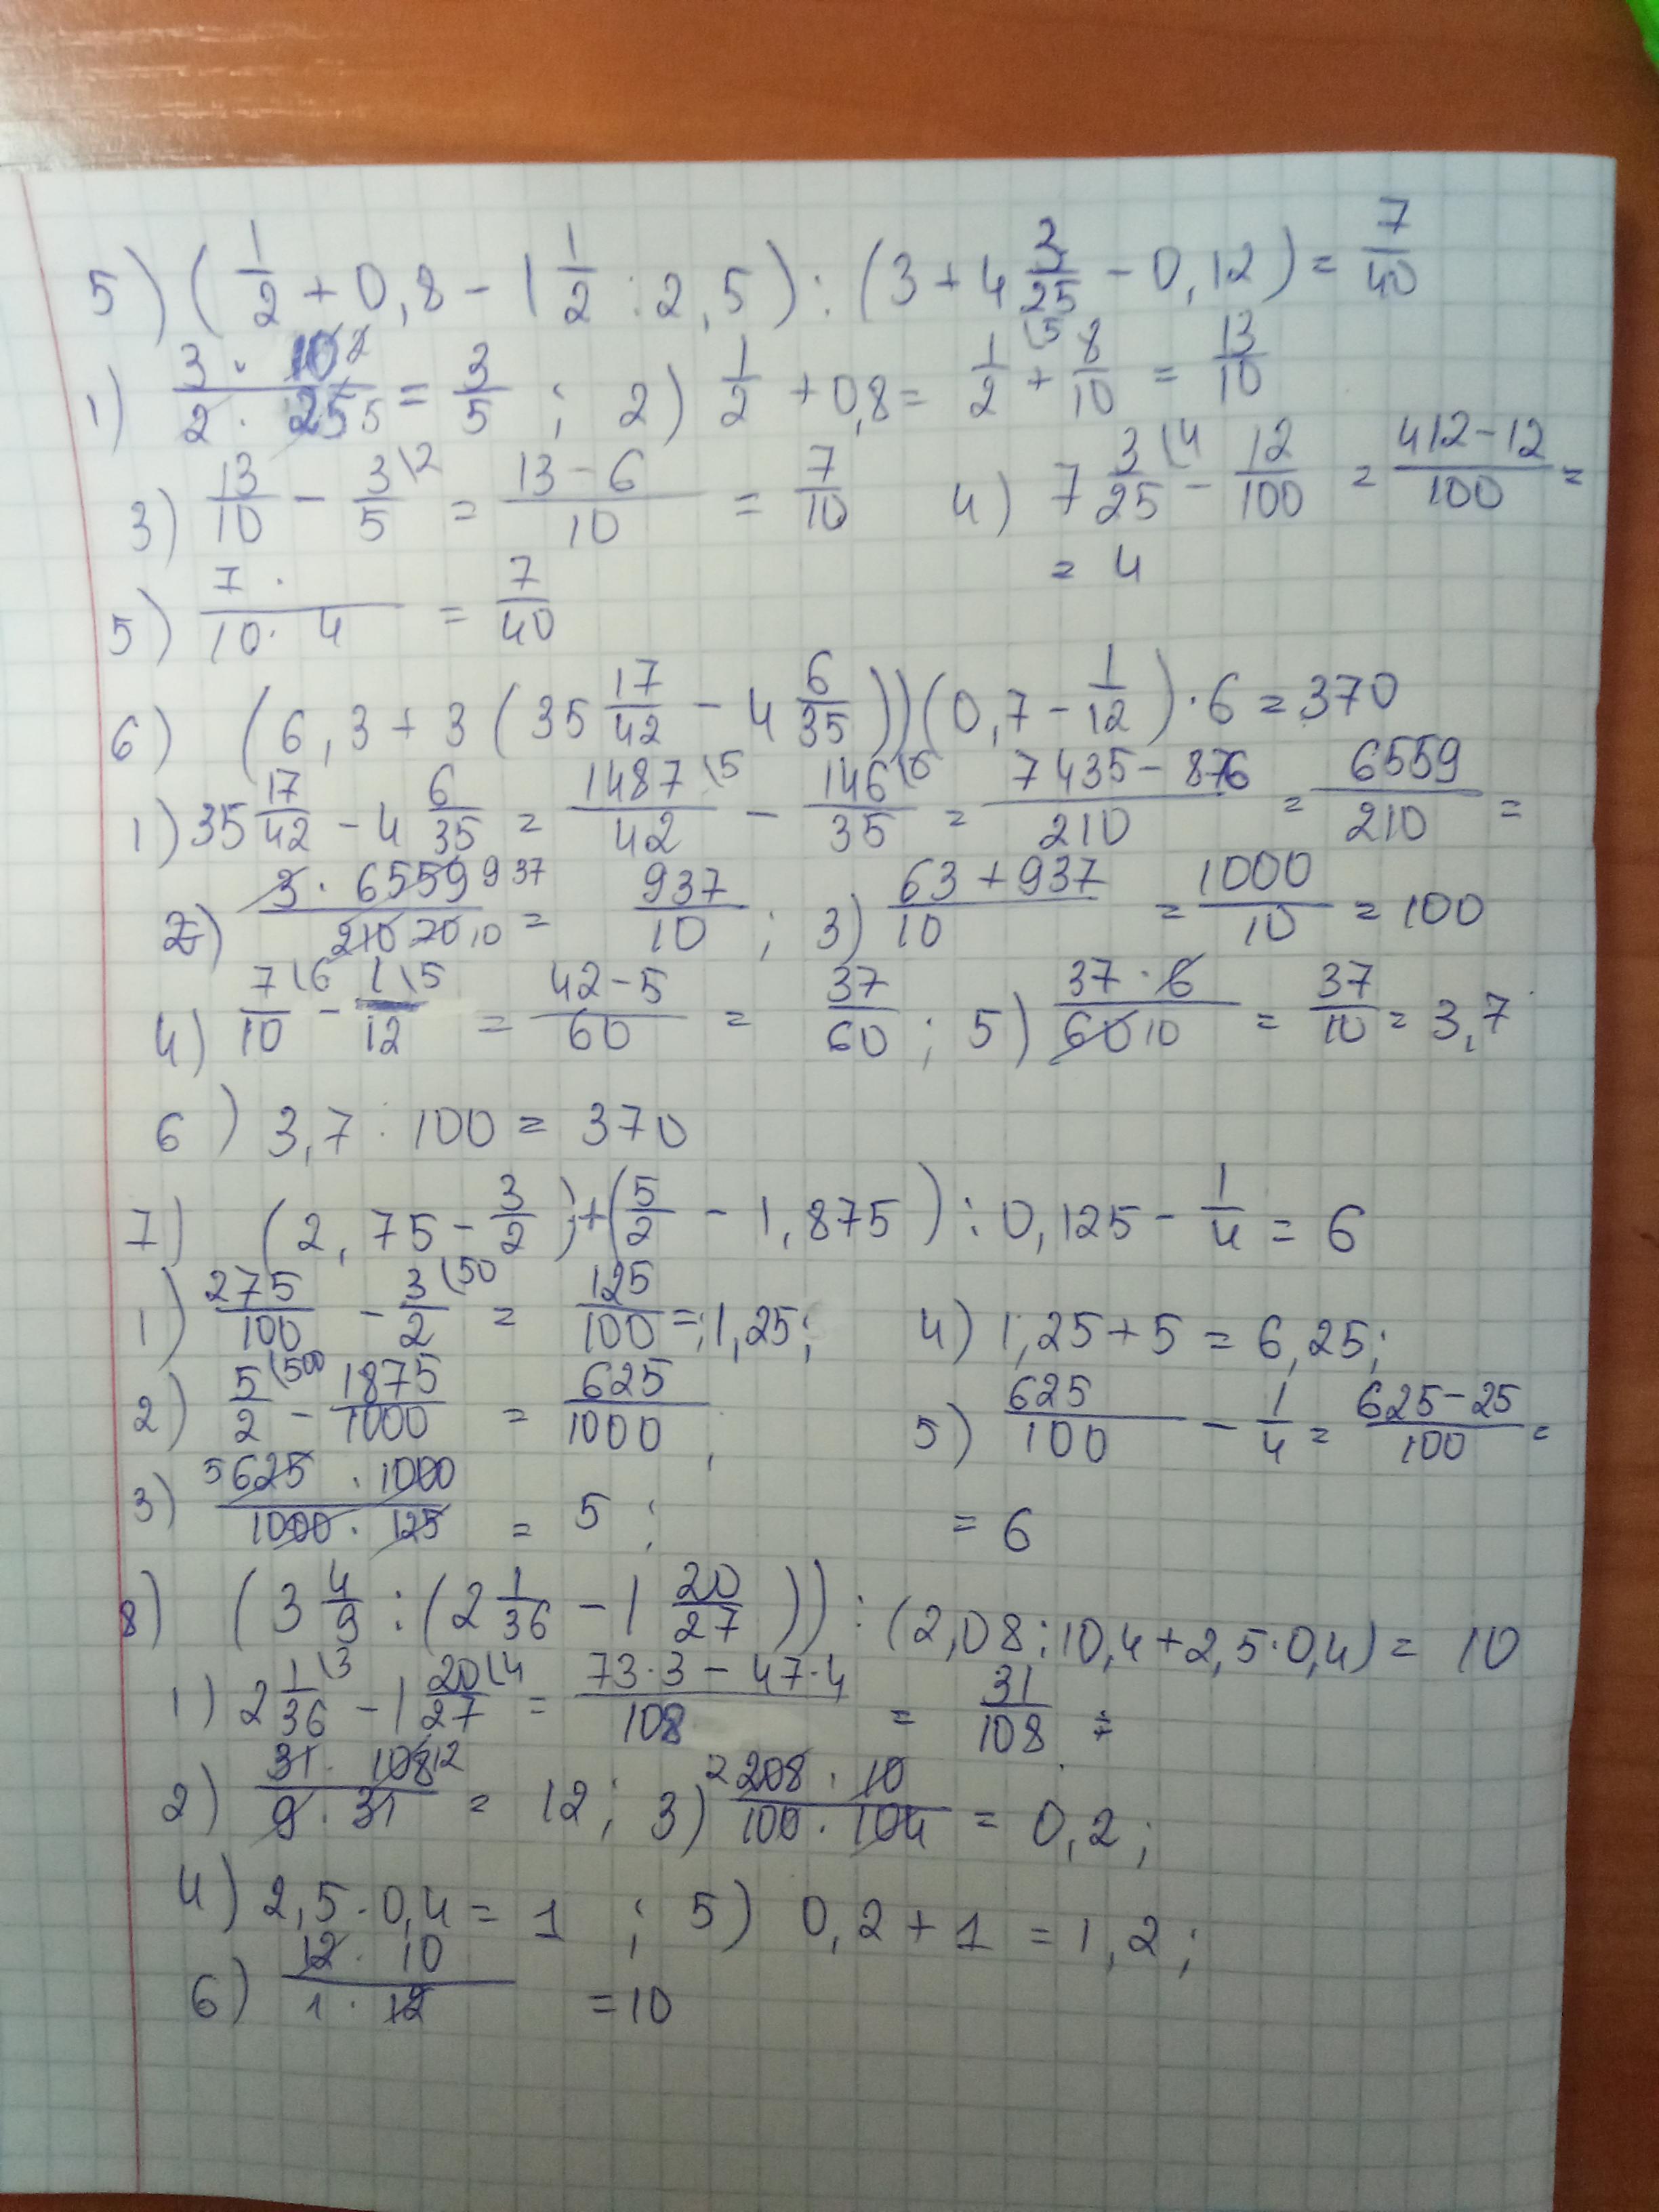 5) (1/2 + 0,8 - 1 1/2 : 2,5) : (3 + 4 3/25 - 0,12) = 7/40
1) 3 · 10 2 / 2 · 25 5 = 3/5 ; 2) 1/2 + 0,8 = 1/2 \5 + 8/10 = 13/10
3) 13/10 - 3/5 \2 = 13 - 6 / 10 = 7/10 4) 7 3/25 \4 - 12/100 = 412 - 12 / 100 =
= 4
5) 7 · / 10 · 4 = 7/40
6) (6,3 + 3 (35 17/42 - 4 6/35))(0,7 - 1/12) · 6 = 370
1) 35 17/42 - 4 6/35 = 1487/42 \5 - 146/35 \6 = 7435 - 876 / 210 = 6559/210 =
2) 3 · 6559 937 / 210 70 10 = 937/10 ; 3) 63 + 937 / 10 = 1000/10 = 100
4) 7/10 \6 - 1/12 \5 = 42 - 5 / 60 = 37/60 ; 5) 37 · 6 / 60 10 = 37/10 = 3,7
6) 3,7 · 100 = 370
7) (2,75 - 3/2) + (5/2 - 1,875) : 0,125 - 1/4 = 6
1) 275/100 - 3/2 \50 = 125/100 = 1,25; 4) 1,25 + 5 = 6,25;
2) 5/2 \500 - 1875/1000 = 625/1000 ; 5) 625/100 - 1/4 = 625 - 25 / 100 =
3) 5 625 · 1000 / 1000 · 125 = 5 ; = 6
8) (3 4/9 : (2 1/36 - 1 20/27)) : (2,08 : 10,4 + 2,5 · 0,4) = 10
1) 2 1/36 \3 - 1 20/27 \4 = 73 · 3 - 47 · 4 / 108 = 31/108 ;
2) 31 · 108 12 / 9 · 31 = 12 ; 3) 2 208 · 10 / 100 · 104 = 0,2 ;
4) 2,5 · 0,4 = 1 ; 5) 0,2 + 1 = 1,2 ;
6) 12 · 10 / 1 · 12 = 10